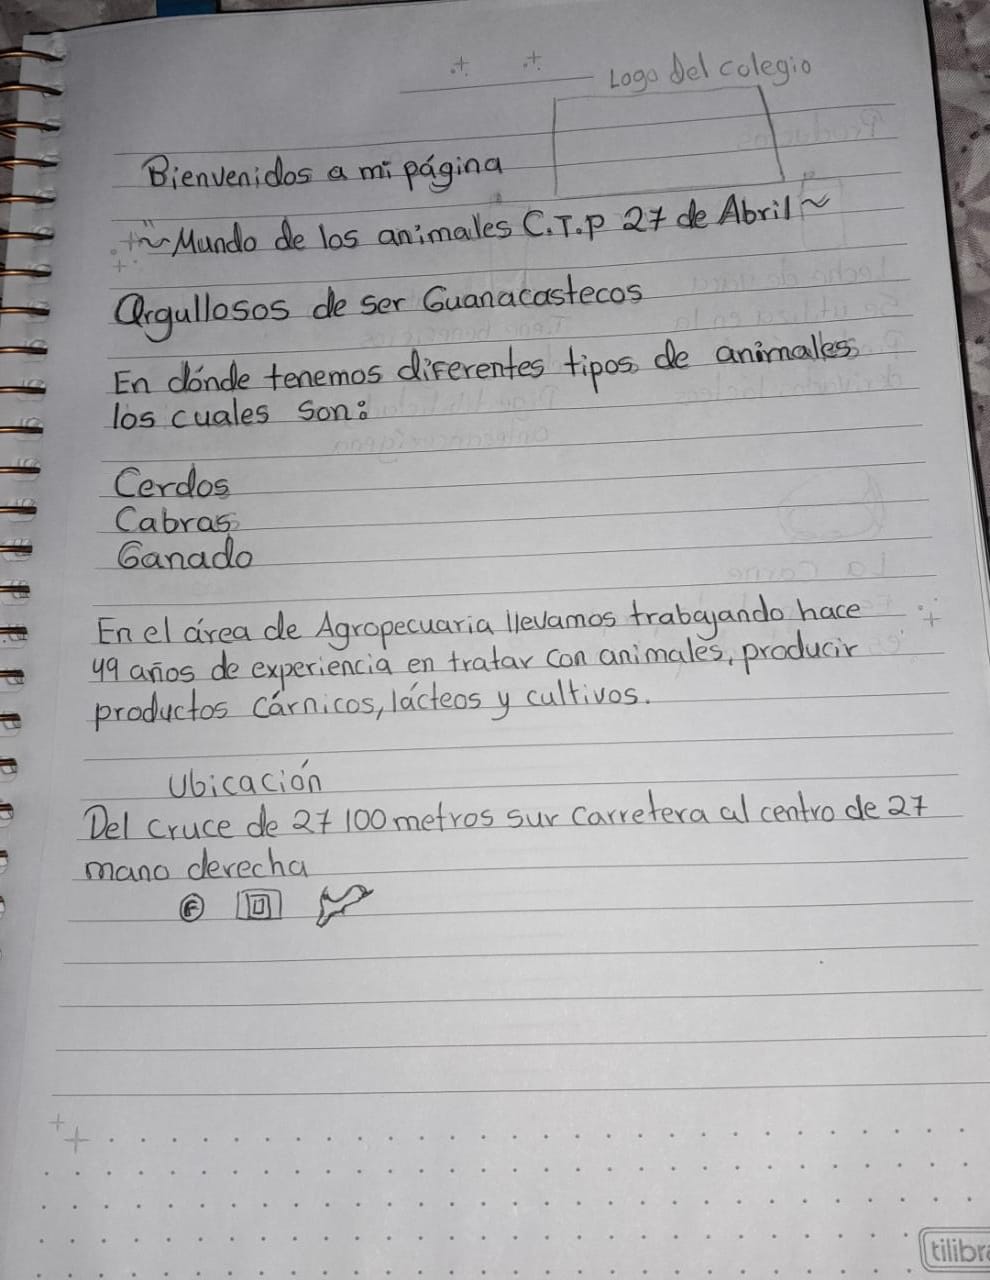 Logo del colegio
Bienvenidos a mi página
~ Mundo de los animales C.T.P 27 de Abril ~
Orgullosos de ser Guanacastecos
En dónde tenemos diferentes tipos de animales
los cuales son:
Cerdos
Cabras
Ganado
En el área de Agropecuaria llevamos trabajando hace
49 años de experiencia en tratar con animales, producir
productos cárnicos, lácteos y cultivos.
Ubicación
Del cruce de 27 100 metros sur carretera al centro de 27
mano derecha
tilibra